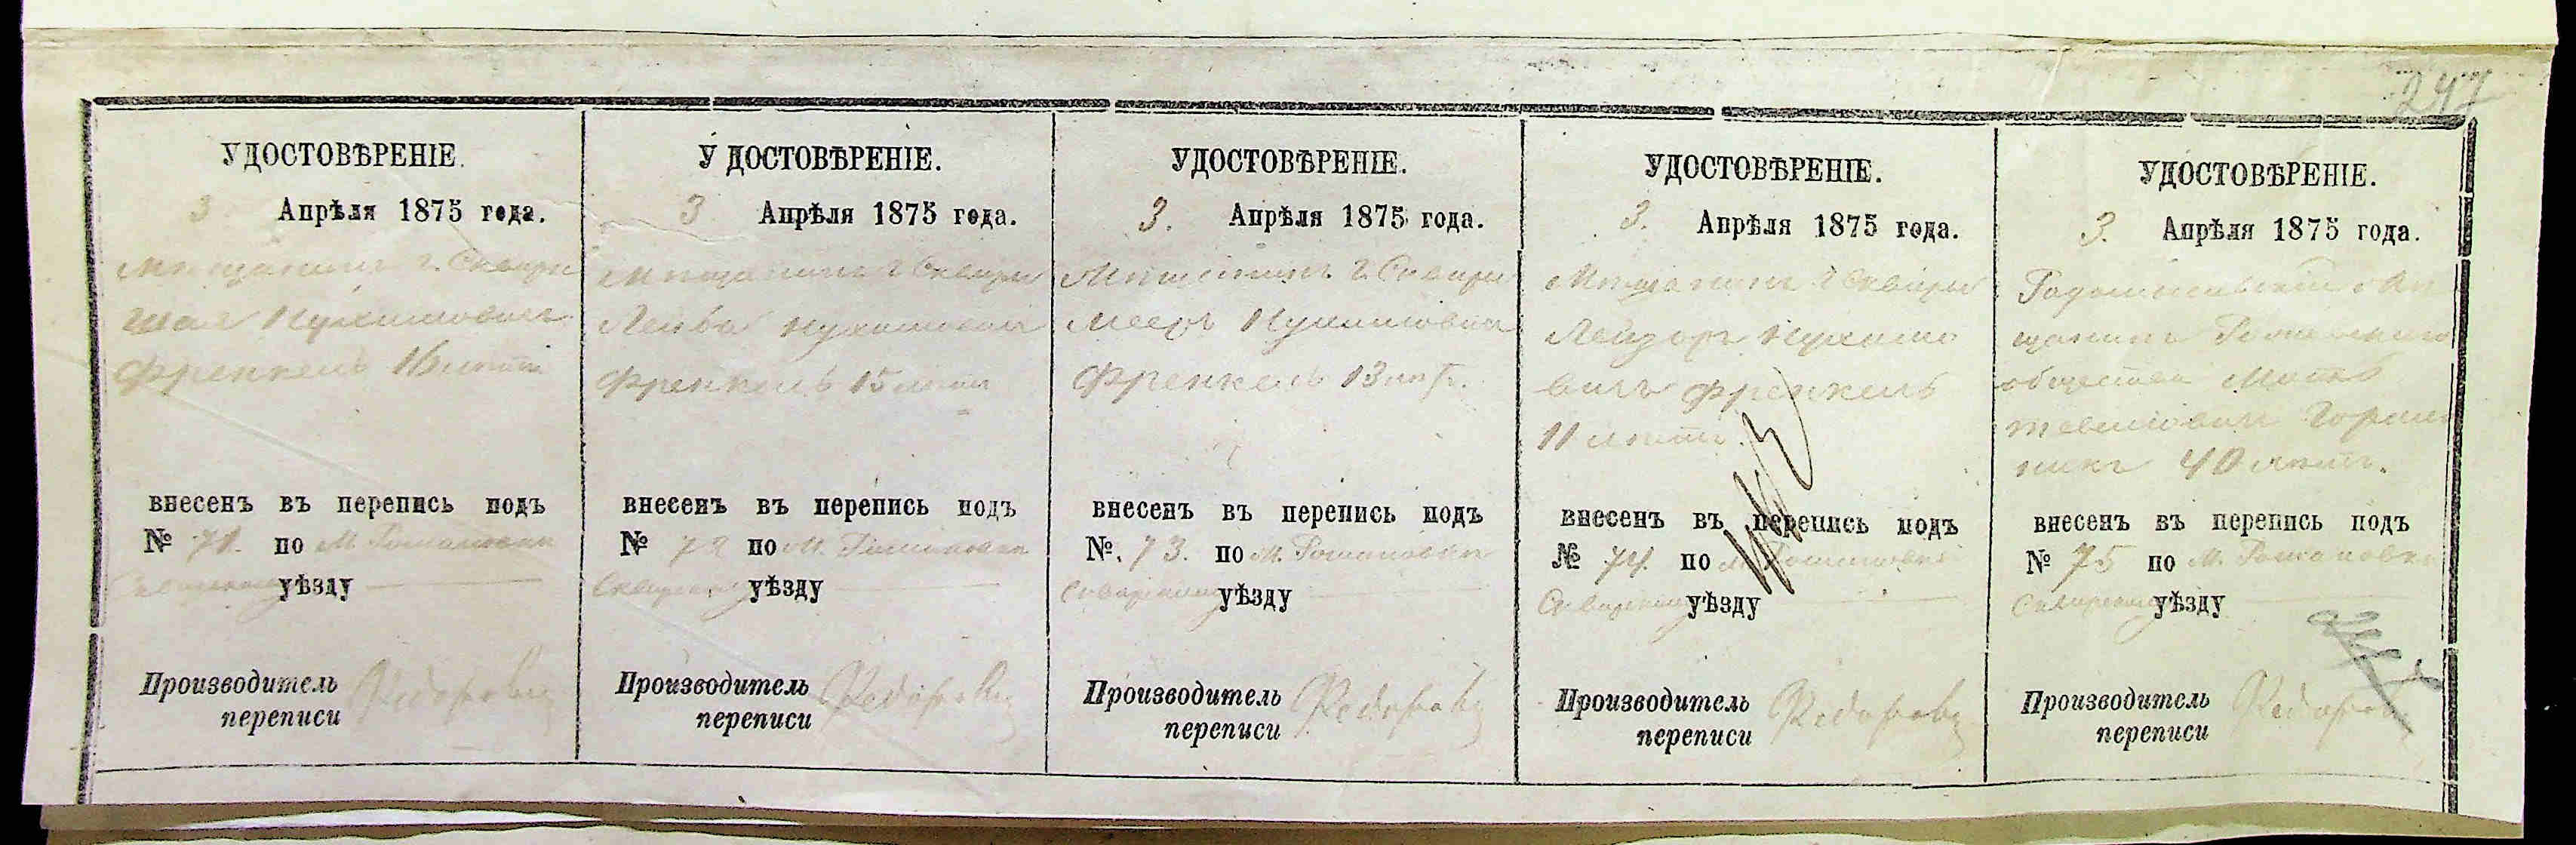 247
УДОСТОВѢРЕНІЕ.
3 Апрѣля 1875 года.
Мѣщанинъ г. Сквиры
Шая Нухимовичъ
Френкель 16 лѣтъ
внесенъ въ перепись подъ
№ 71. по М. Романовкѣ
Сквирскому уѣзду
Производитель Федоровъ
переписи
УДОСТОВѢРЕНІЕ.
3 Апрѣля 1875 года.
Мѣщанинъ г Сквиры
Лейба Нухимовичъ
Френкель 15 лѣтъ
внесенъ въ перепись подъ
№ 72 по М. Романовкѣ
Сквирскому уѣзду
Производитель Федоровъ
переписи
УДОСТОВѢРЕНІЕ.
3. Апрѣля 1875 года.
Мѣщанинъ г. Сквиры
Мееръ Нухимовичъ
Френкель 13 лѣтъ.
внесенъ въ перепись подъ
№. 73. по М. Романовкѣ
Сквирскому уѣзду
Производитель Федоровъ
переписи
УДОСТОВѢРЕНІЕ.
3. Апрѣля 1875 года.
Мѣщанинъ г Сквиры
Лейзоръ Нухимо
вичъ Френкель
11 лѣтъ.
внесенъ въ перепись подъ
№ 74. по М. Романовкѣ
Сквирскому уѣзду
Производитель Федоровъ
переписи
УДОСТОВѢРЕНІЕ.
3. Апрѣля 1875 года.
Радомысльскій мѣ
щанинъ
общества
40 лѣтъ.
внесенъ въ перепись подъ
№ 75 по М. Романовкѣ
Сквирскому уѣзду
Производитель Федоровъ
переписи